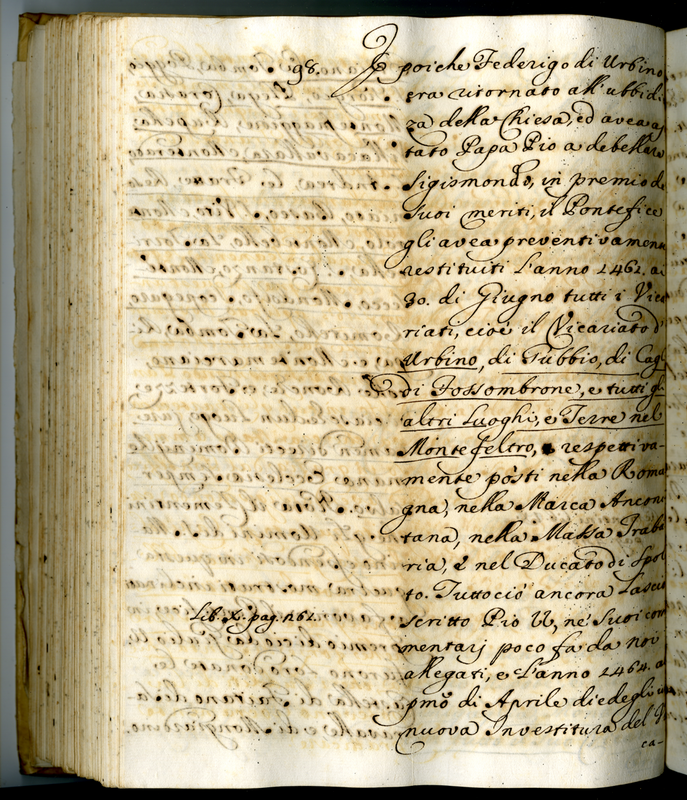 98. E poiche Federigo di Urbino
era ritornato all' ubbidi:
za della Chiesa, ed avea aj
tato Papa Pio a debellare
Sigismondo, in premio de
Suoi meriti, il Pontefice
gli avea preventivamente
restituiti l'anno 1462. ai
30. di Giugno tutti i Vica
riati, cioè il Vicariato d'
Urbino, di Gubbio, di Cagl
di Fossombrone, e tutti gli
altri Luoghi, e Terre nel
Montefeltro, e respettiva-
mente posti nella Roma
gna, nella Marca Anconi
tana, nella Massa Traba
ria, e nel Ducato di Spol
to. Tuttociò ancora lasciò
Lib. X. pag. n 62.
scritto Pio II, ne' Suoi com
mentarj poco fa da noi
allegati, e l'anno 1464. al
pmô di Aprile diedegli
nuova Investitura del
ca-